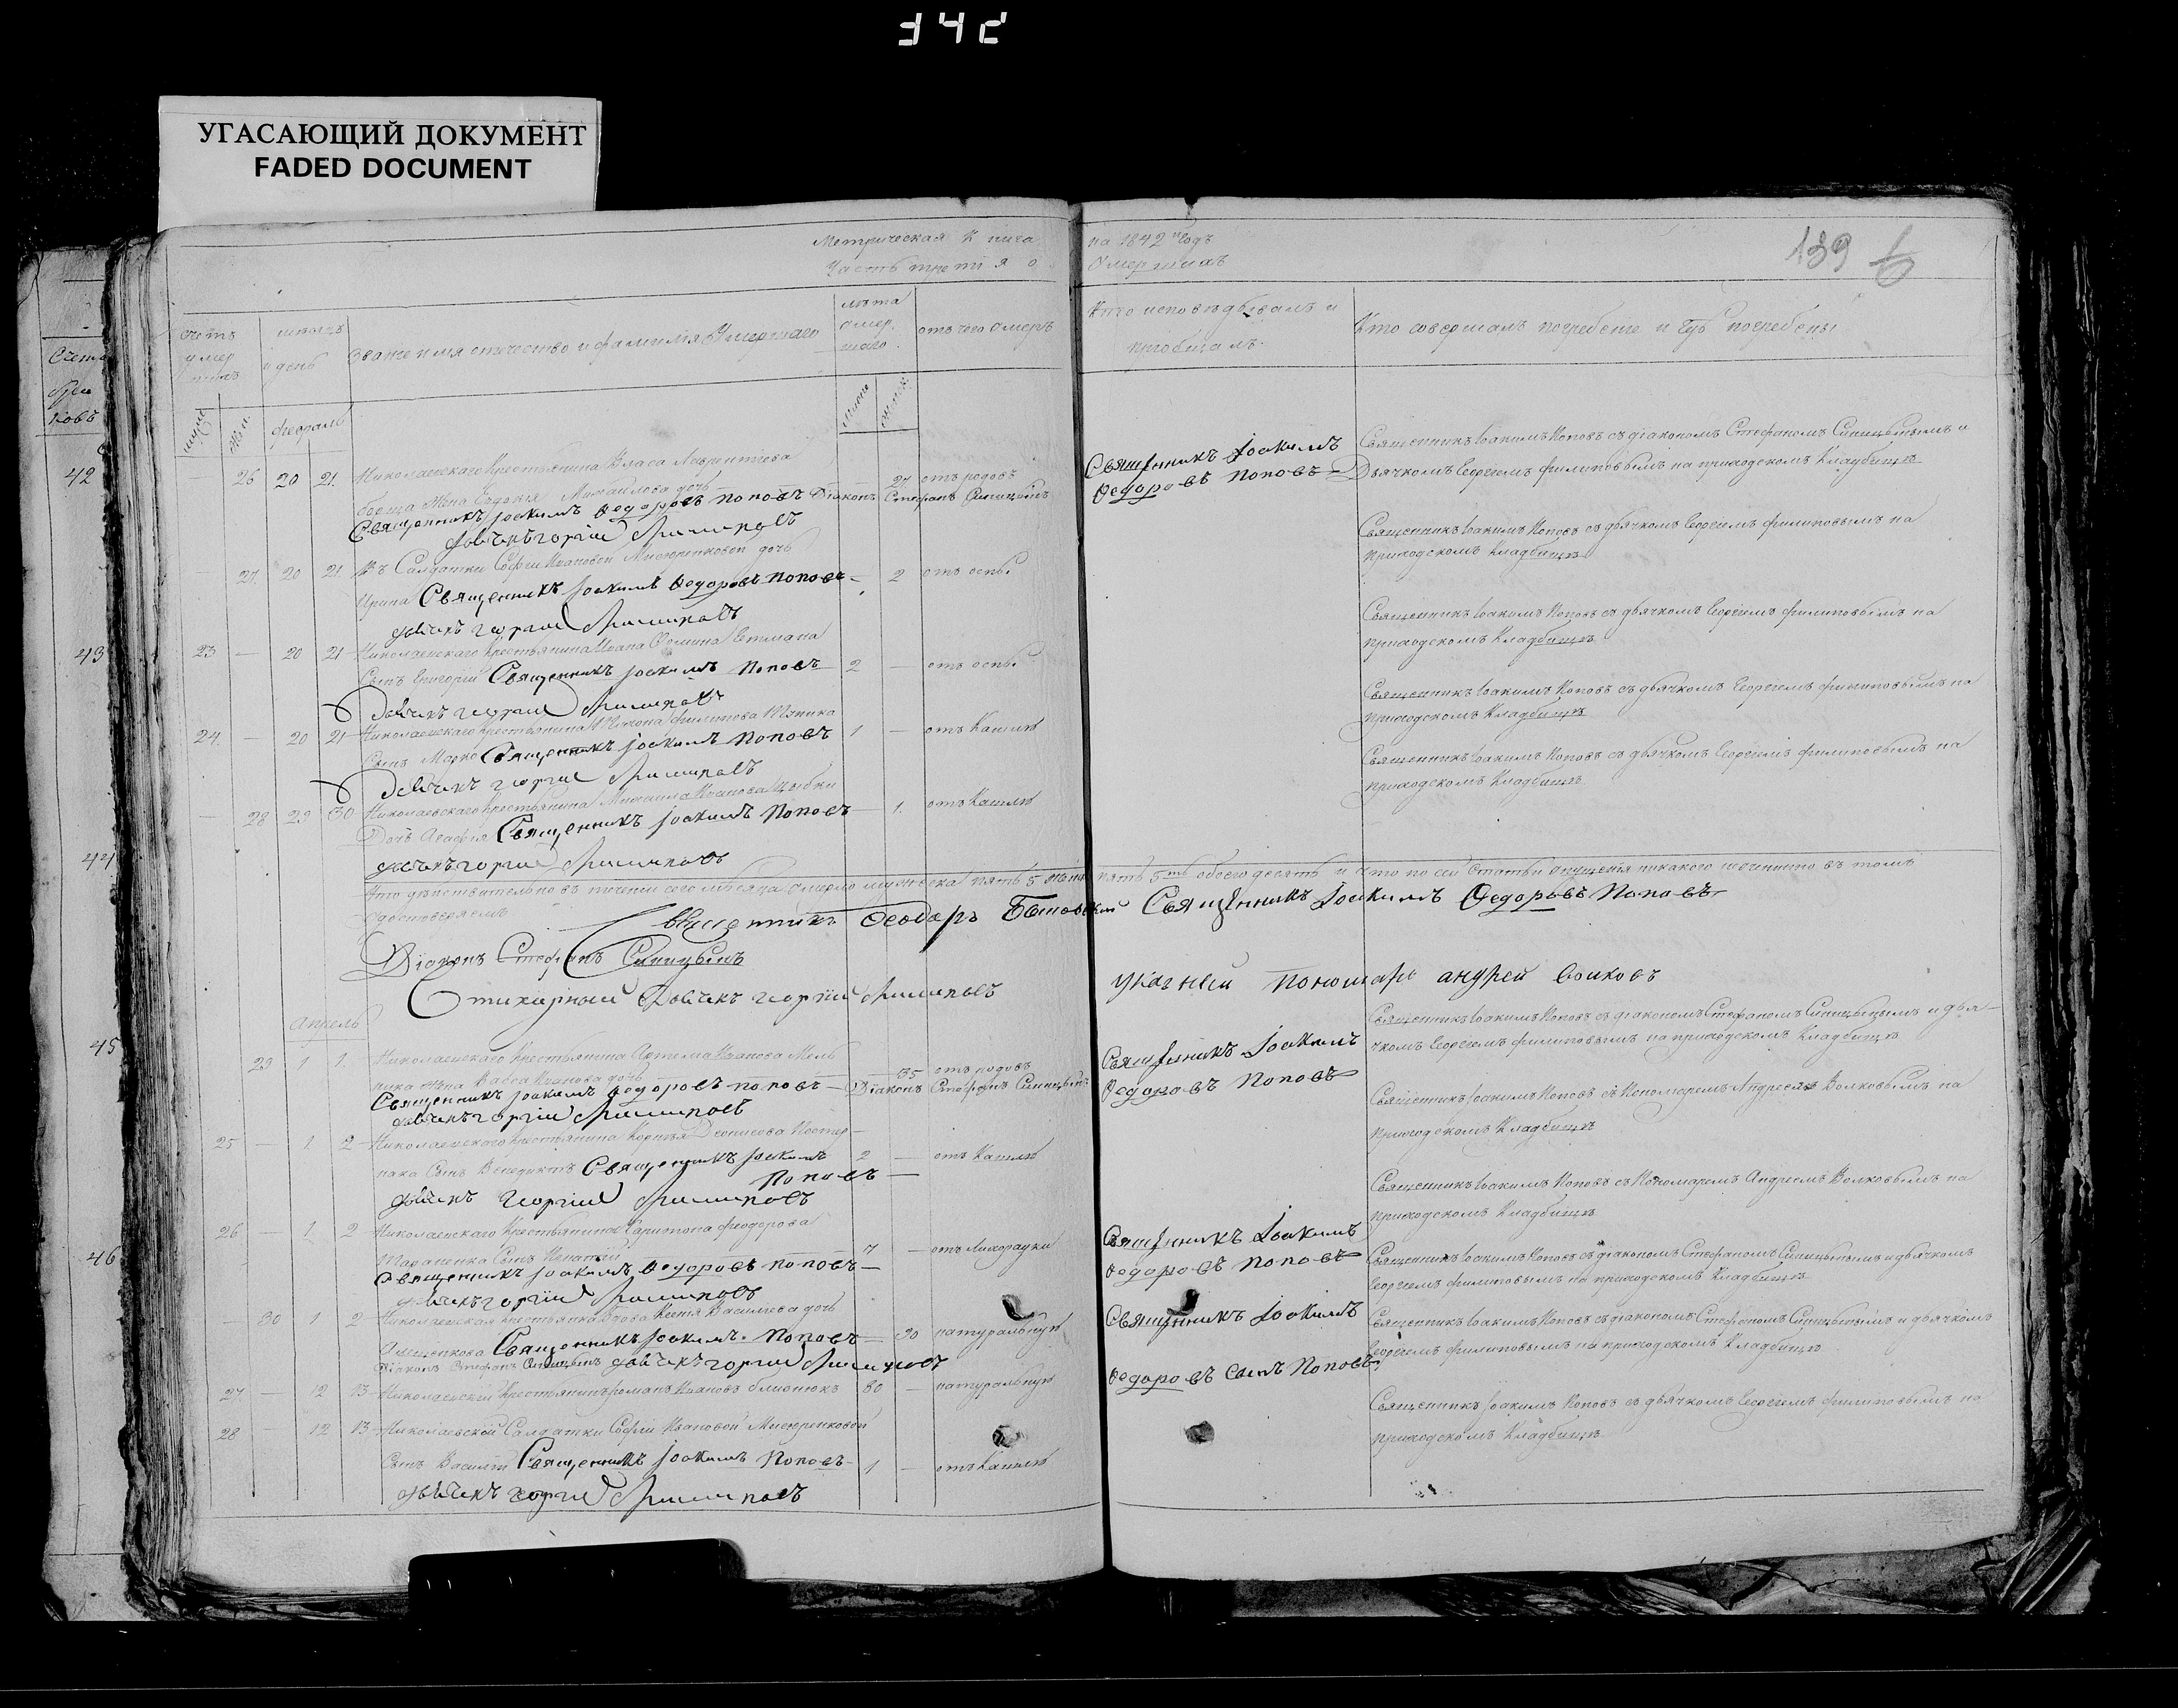 342
УГАСАЮЩИЙ ДОКУМЕНТ
FADED DOCUMENT
Метрическая Книга на 1842 Годъ
Часть третія о Умершихъ
139
Счетъ умершихъ
мѣсяцъ и день
Званіе имя отчество и фамилія Умершаго
лѣта умершаго
отъ чего Умеръ
Кто исповѣдывалъ и пріобщалъ
Кто совершалъ погребеніе и гдѣ погребены
февраль
42
26 20 21 Николаевскаго Крестьянина Власа Лаврентьева
жена Евдокія Михайлова дочь 27 отъ родовъ
Священникъ Іоакимъ Федоровъ Поповъ Діаконъ Стефанъ Синицынъ
Дьячекъ Георгій Филиповъ
Священникъ Іоакимъ
Федоровъ Поповъ
Священникъ Іоакимъ Поповъ съ діакономъ Стефаномъ Синицынымъ и
Дьячкомъ Георгіемъ Филиповымъ на приходскомъ Кладбищѣ
27 20 21 Солдатки Софіи Ивановой дочь
Ирина Священникъ Іоакимъ Федоровъ Поповъ 2 отъ оспы
Дьячекъ Георгій Филиповъ
Священникъ Іоакимъ Поповъ съ дьячкомъ Георгіемъ Филиповымъ на
приходскомъ Кладбищѣ
43
23 — 20 21 Николаевскаго Крестьянина Ивана
Сынъ Григорій Священникъ Іоакимъ Поповъ 2 — отъ оспы
Дьячекъ Георгій Филиповъ
Священникъ Іоакимъ Поповъ съ дьячкомъ Георгіемъ Филиповымъ на
приходскомъ Кладбищѣ
24 — 20 21 Николаевскаго Крестьянина Филипова
Сынъ Марко Священникъ Іоакимъ Поповъ 1 — отъ Кашля
Дьячекъ Георгій Филиповъ
Священникъ Іоакимъ Поповъ съ дьячкомъ Георгіемъ Филиповымъ на
приходскомъ Кладбищѣ
— 28 29 30 Николаевскаго Крестьянина Михаила Иванова
Дочь Агафія Священникъ Іоакимъ Поповъ — 1 отъ Кашля
Дьячекъ Георгій Филиповъ
Священникъ Іоакимъ Поповъ съ дьячкомъ Георгіемъ Филиповымъ на
приходскомъ Кладбищѣ
44
Что дѣйствительно въ теченіи сего мѣсяца умерло мужеска пять 5 женска пять 5ть обоего десять и что по сей статьи упущенія никакого неучинено въ томъ
удостовѣряемъ
Священникъ Феодоръ Священникъ Іоакимъ Федоровъ Поповъ
Діаконъ Стефанъ Синицынъ
Стихарный Дьячекъ Георгій Филиповъ
указный пономарь андрей волковъ
Апрель
45
29 1 1 Николаевскаго Крестьянина Артема Иванова Мель
ника жена Васса Иванова дочь — 35 отъ родовъ
Священникъ Іоакимъ Федоровъ Поповъ — Діаконъ Стефанъ Синицынъ
Дьячекъ Георгій Филиповъ
Священникъ Іоакимъ
Федоровъ Поповъ
Священникъ Іоакимъ Поповъ съ діакономъ Стефаномъ Синицынымъ и дья—
чкомъ Георгіемъ Филиповымъ на приходскомъ Кладбищѣ
25 — 1 2 Николаевскаго Крестьянина Корнѣя Денисова
Сынъ Венедиктъ Священникъ Іоакимъ 2 — отъ Кашля
Поповъ —
Дьячекъ Георгій Филиповъ
Священникъ Іоакимъ Поповъ съ Пономаремъ Андреемъ Волковымъ на
приходскомъ Кладбищѣ
46
26 — 1 2 Николаевскаго Крестьянина Харитона Феодорова
Тараненка Сынъ Игнатій 7 — отъ Лихорадки
Священникъ Іоакимъ Федоровъ Поповъ —
Дьячекъ Георгій Филиповъ
Священникъ Іоакимъ
Федоровъ Поповъ
Священникъ Іоакимъ Поповъ съ Пономаремъ Андреемъ Волковымъ на
приходскомъ Кладбищѣ
30 1 2 Николаевская Крестьянка Вдова Васильева дочь
Священникъ Іоакимъ Поповъ — 90 натуральную
Діаконъ Стефанъ Синицынъ Дьячекъ Георгій Филиповъ
Священникъ Іоакимъ
Федоровъ сынъ Поповъ
Священникъ Іоакимъ Поповъ съ діакономъ Стефаномъ Синицынымъ и дьячкомъ
Георгіемъ Филиповымъ на приходскомъ Кладбищѣ
27 — 12 13 Николаевскій Крестьянинъ Романъ Ивановъ 80 — натуральную
Священникъ Іоакимъ Поповъ съ діакономъ Стефаномъ Синицынымъ и дьячкомъ
Георгіемъ Филиповымъ на приходскомъ Кладбищѣ
28 — 12 13 Николаевской Солдатки Софіи Ивановой
Сынъ Василій Священникъ Іоакимъ Поповъ 1 — отъ Кашля
Дьячекъ Георгій Филиповъ
Священникъ Іоакимъ Поповъ съ дьячкомъ Георгіемъ Филиповымъ на
приходскомъ Кладбищѣ